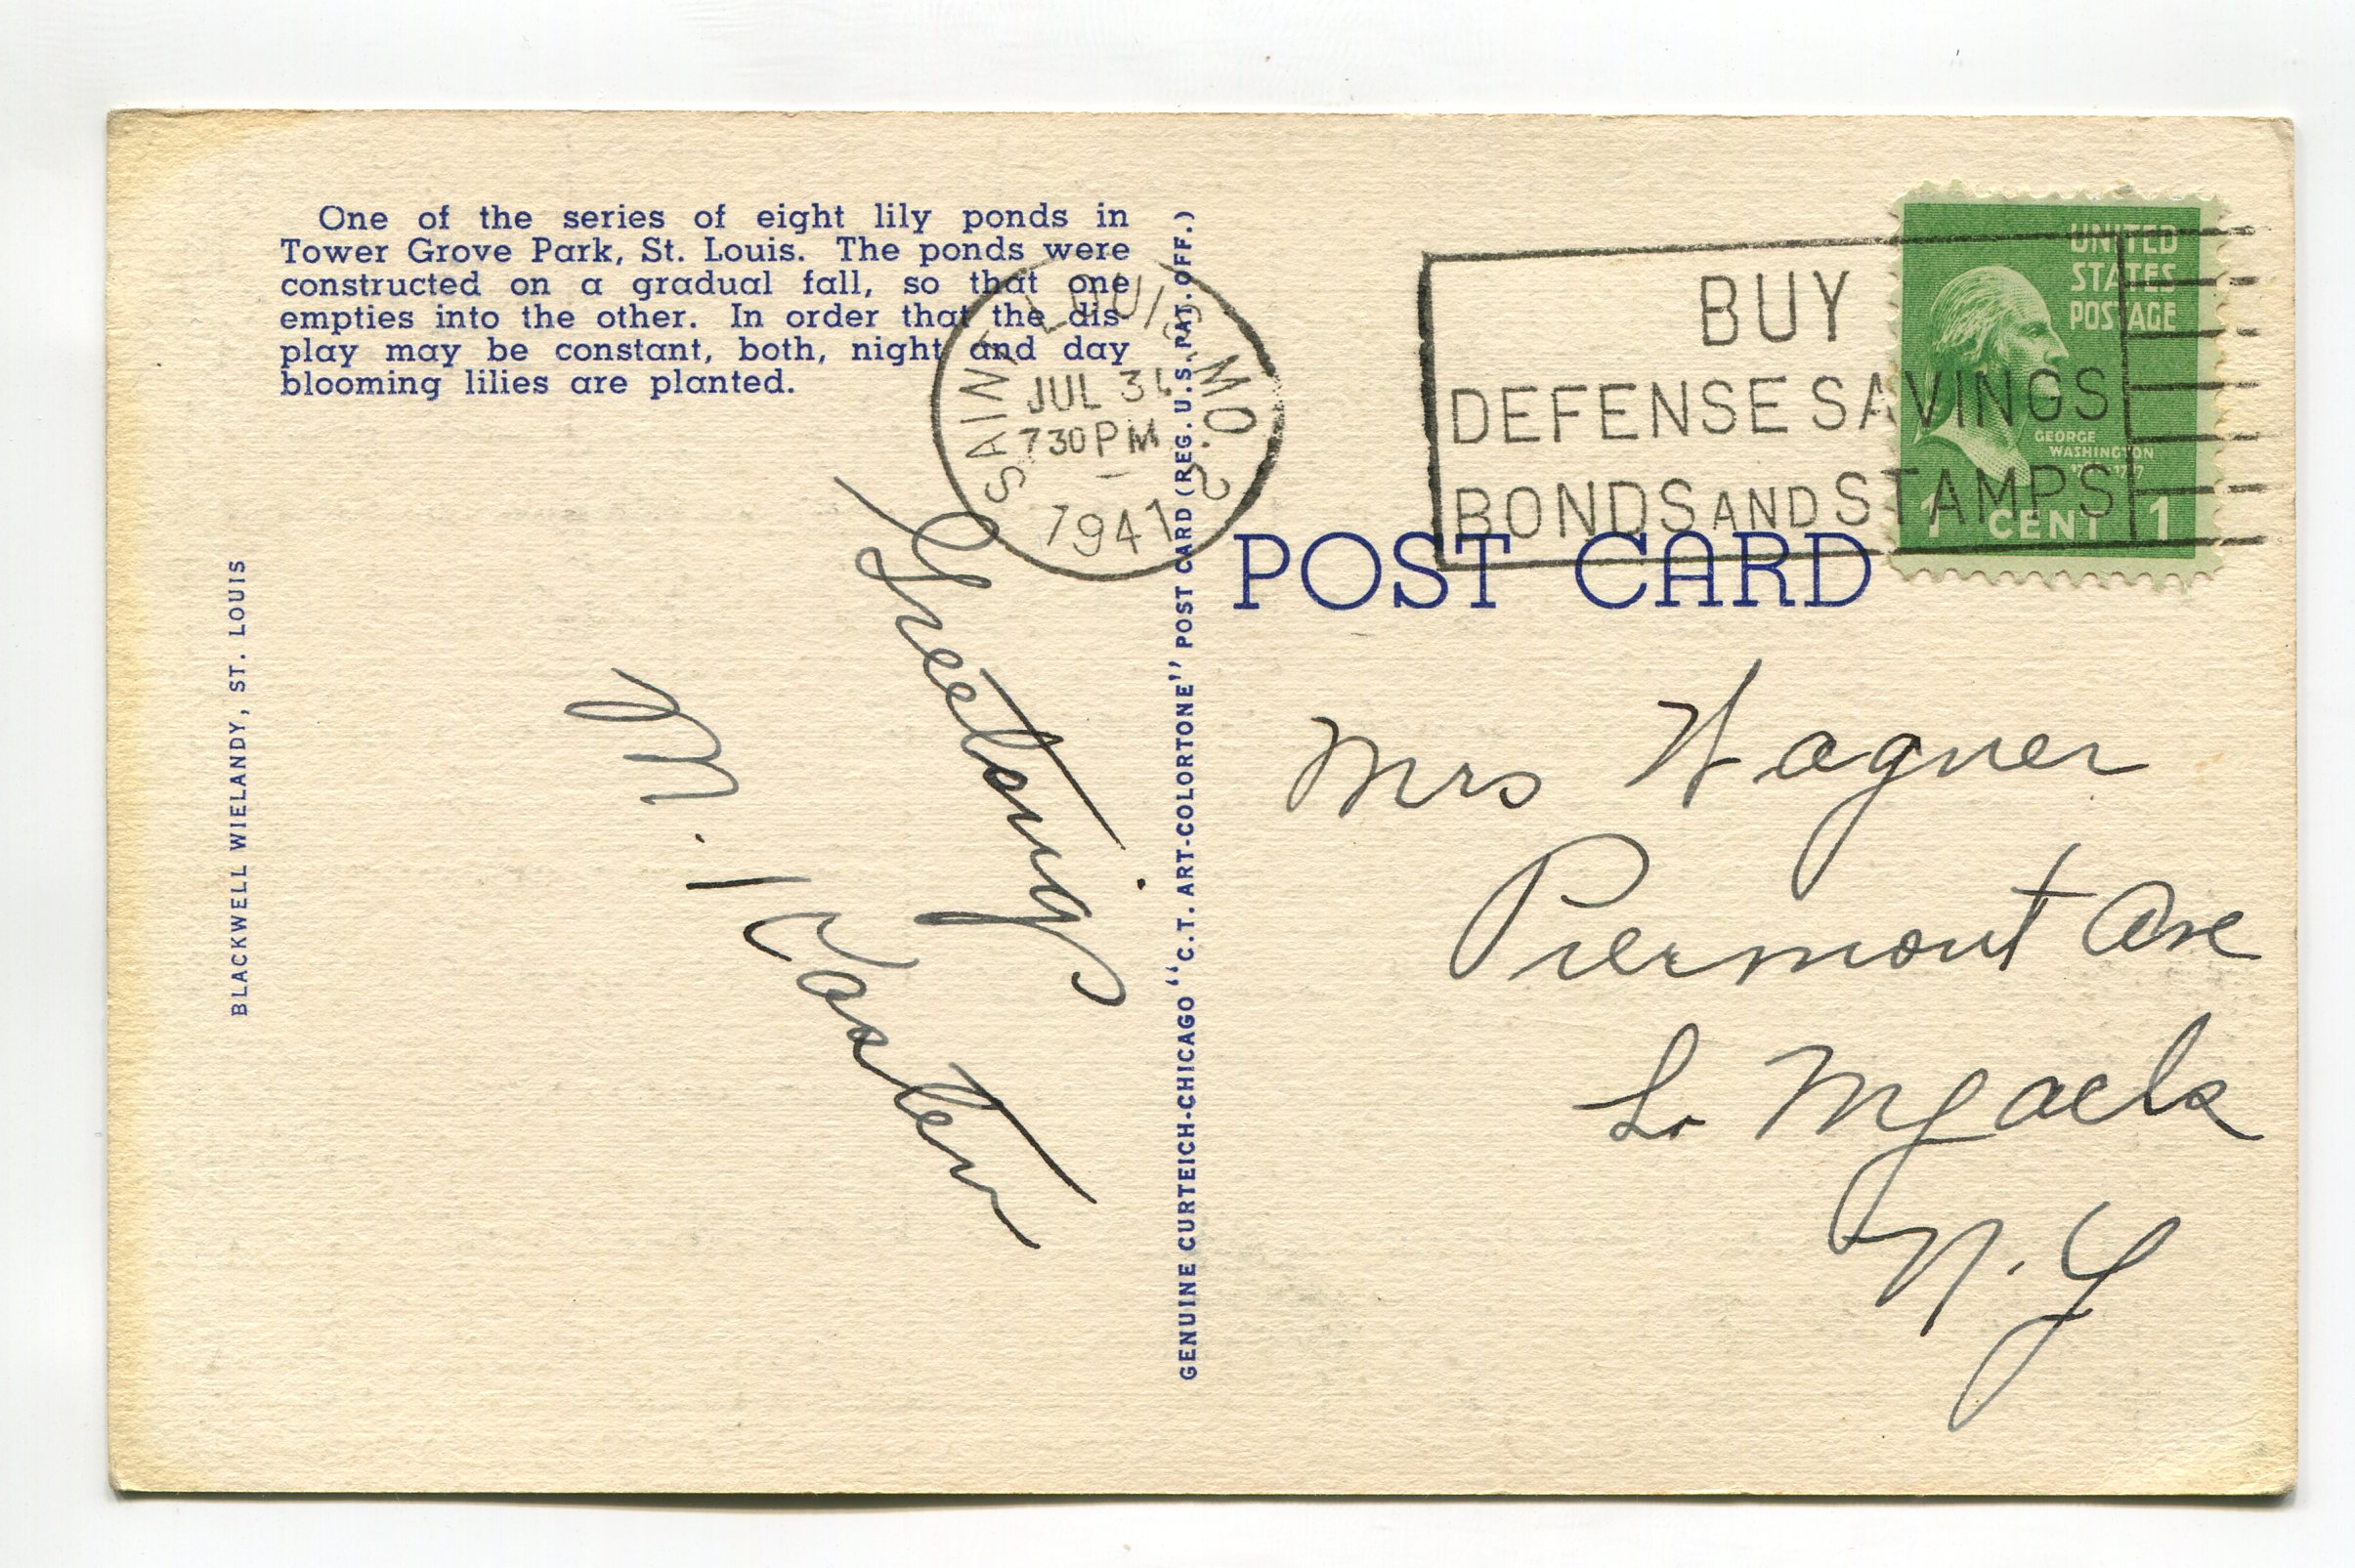 One of the series of eight lily ponds in
Tower Grove Park, St. Louis. The ponds were
constructed on a gradual fall, so that one
empties into the other. In order that the dis-
play may be constant, both, night and day
blooming lilies are planted.
BLACKWELL WIELANDY, ST. LOUIS
Greetings
M. Koster
GENUINE CURTEICH-CHICAGO "C.T. ART-COLORTONE" POST CARD (REG. U.S. PAT. OFF.)
SAINT LOUIS, MO. 2
JUL 31
730 PM
1941
BUY
DEFENSE SAVINGS
BONDS AND STAMPS
UNITED
STATES
POSTAGE
GEORGE
WASHINGTON
1 CENT 1
POST CARD
Mrs Wagner
Piermont Ave
So Nyack
N.Y